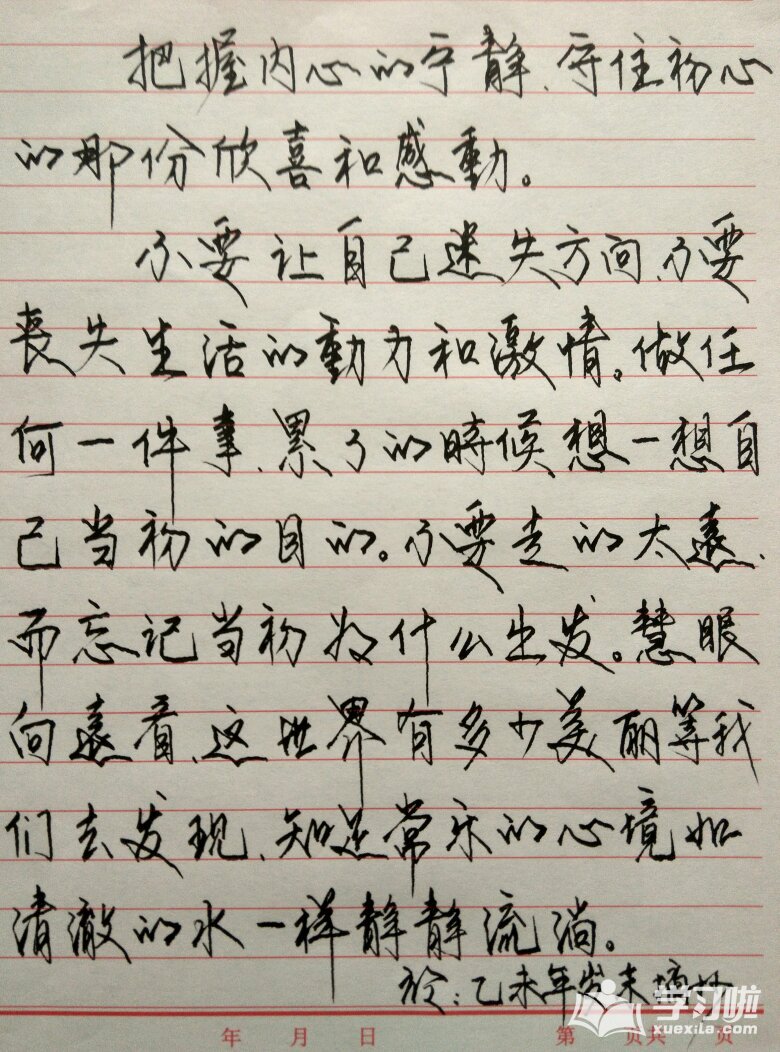 把握内心的宁静、守住初心
的那份欣喜和感動。
不要让自己迷失方向、不要
丧失生活的動力和激情。做任
何一件事、累了的時候想一想自
己当初的目的。不要走的太遠、
而忘记当初为什么出发。慧眼
向遠看、这世界有多少美丽等我
们去发现、知足常乐的心境如
清澈的水一样静静流淌。
於:乙未年岁末
学习啦
xuexila.com
年 月 日 第 页共 页